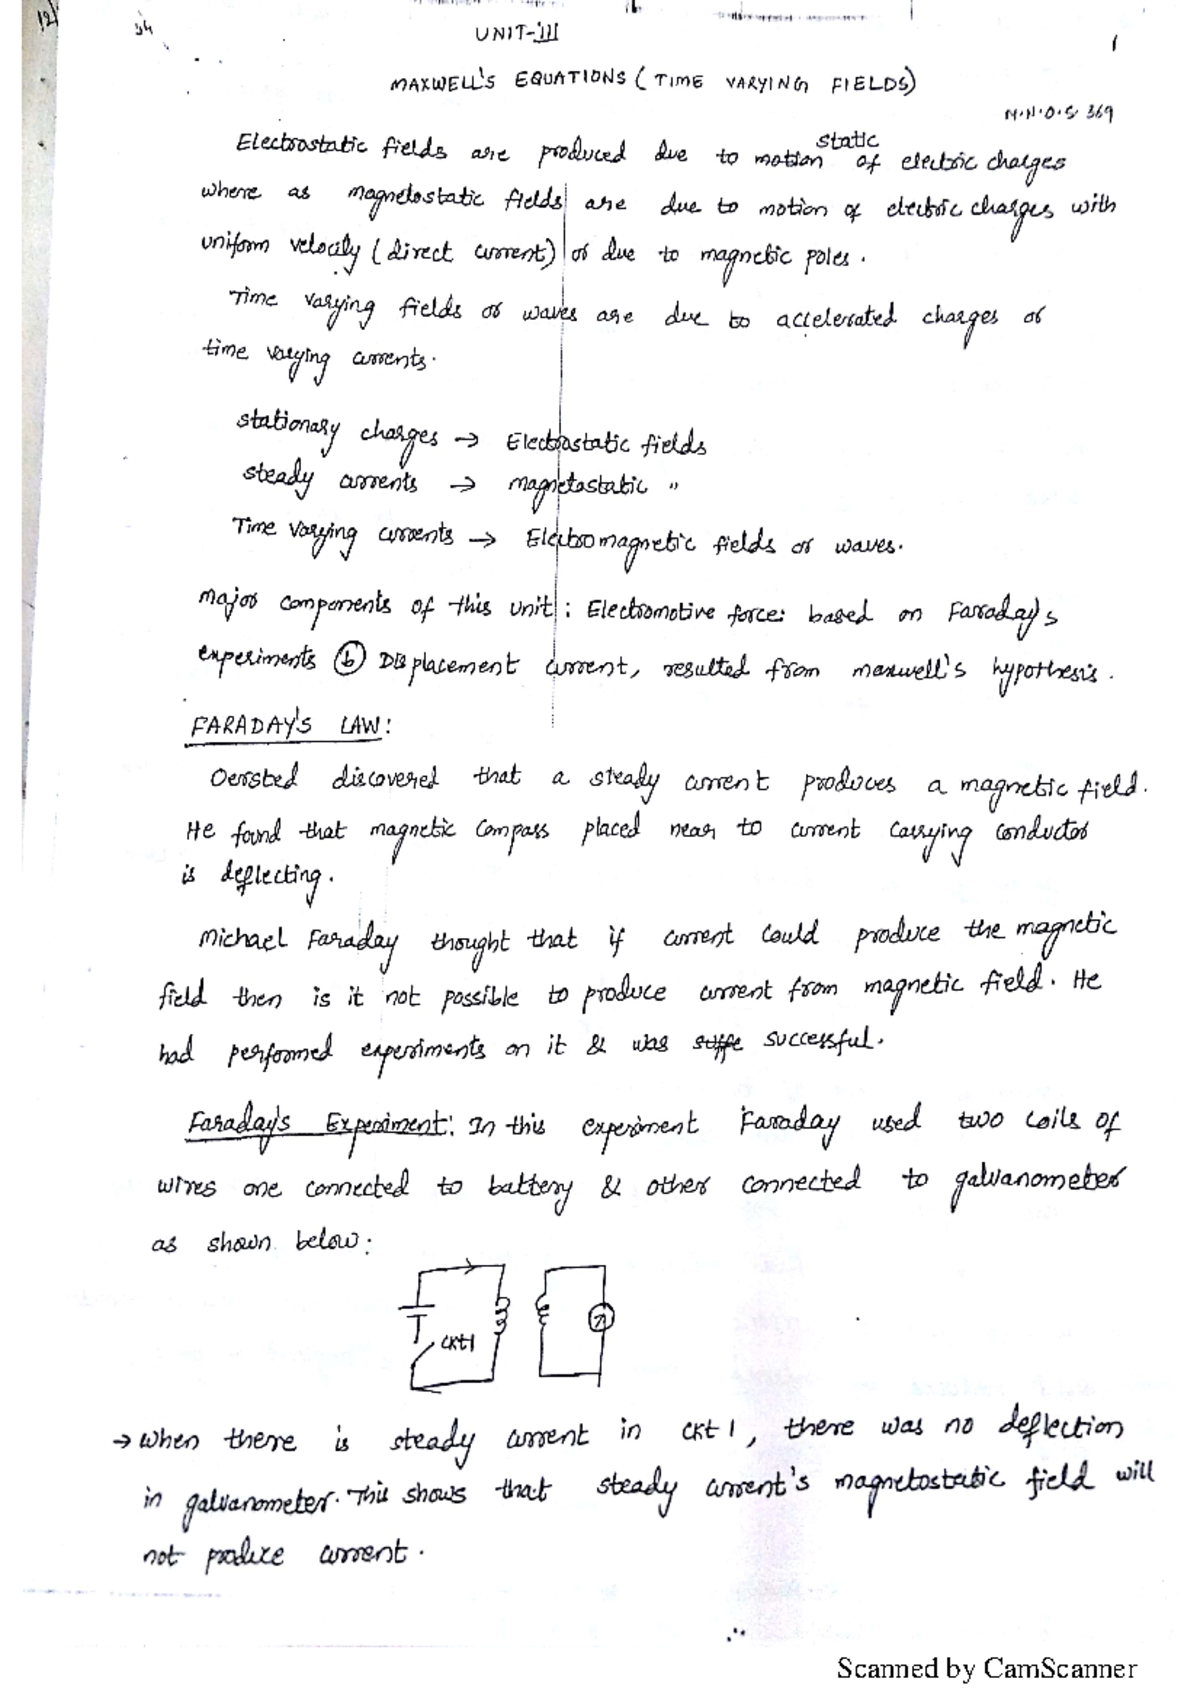 12
34
UNIT-III
1
MAXWELL'S EQUATIONS ( TIME VARYING FIELDS)
M.N.O.S 369
static
Electrostatic fields are produced due to motion of electric charges
where as magnetostatic fields are due to motion of electric charges with
uniform velocity ( direct current) or due to magnetic poles.
Time varying fields or waves are due to accelerated charges or
time varying currents.
stationary charges → Electrostatic fields
steady currents → magnetostatic "
Time varying currents → Electromagnetic fields or waves.
major components of this unit : Electromotive force: based on Faraday's
experiments (b) Displacement current, resulted from maxwell's hypothesis.
FARADAY'S LAW:
Oersted discovered that a steady current produces a magnetic field.
He found that magnetic compass placed near to current carrying conductor
is deflecting.
Michael Faraday thought that if current could produce the magnetic
field then is it not possible to produce current from magnetic field. He
had performed experiments on it & was successful.
Faraday's Experiment: In this experiment Faraday used two coils of
wires one connected to battery & other connected to galvanometer
as shown below:
ckt1
→ when there is steady current in ckt 1, there was no deflection
in galvanometer. This shows that steady current's magnetostatic field will
not produce current.
Scanned by CamScanner